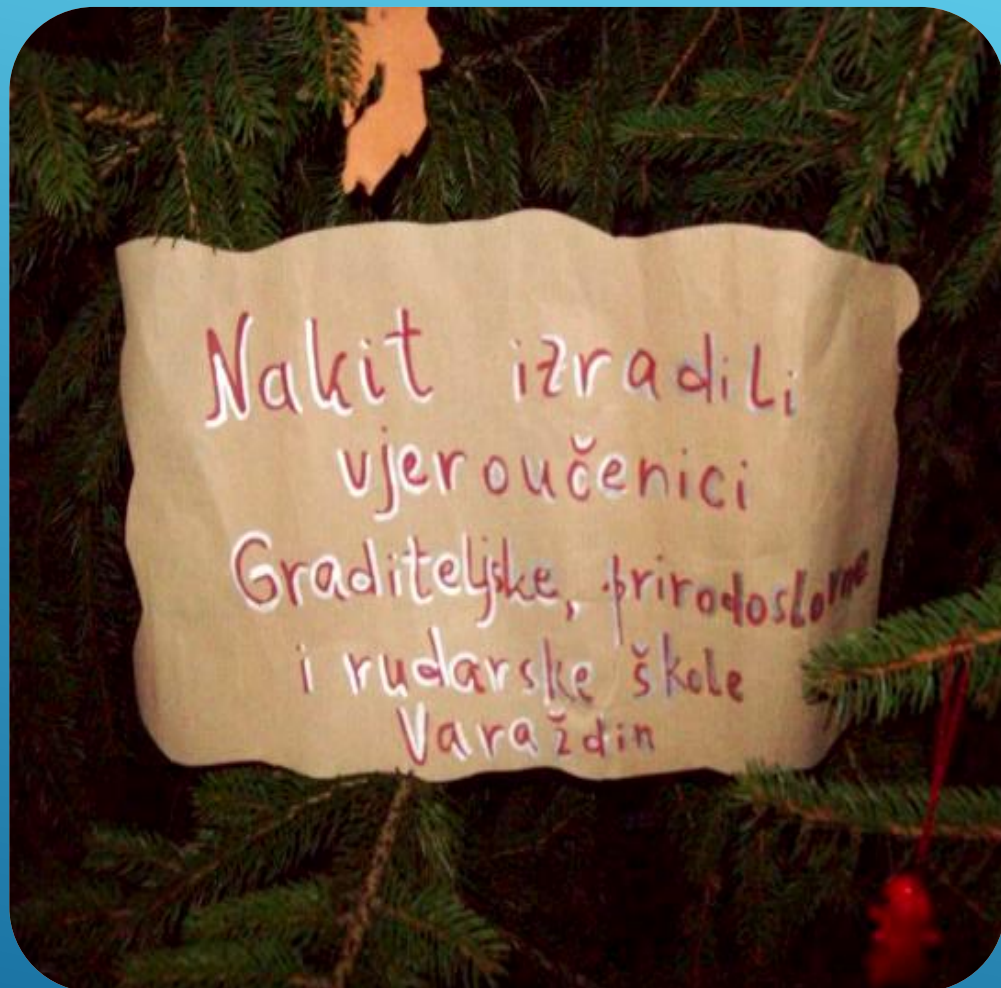 Nakit izradili
vjeroučenici
Graditeljske, prirodoslovne
i rudarske škole
Varaždin